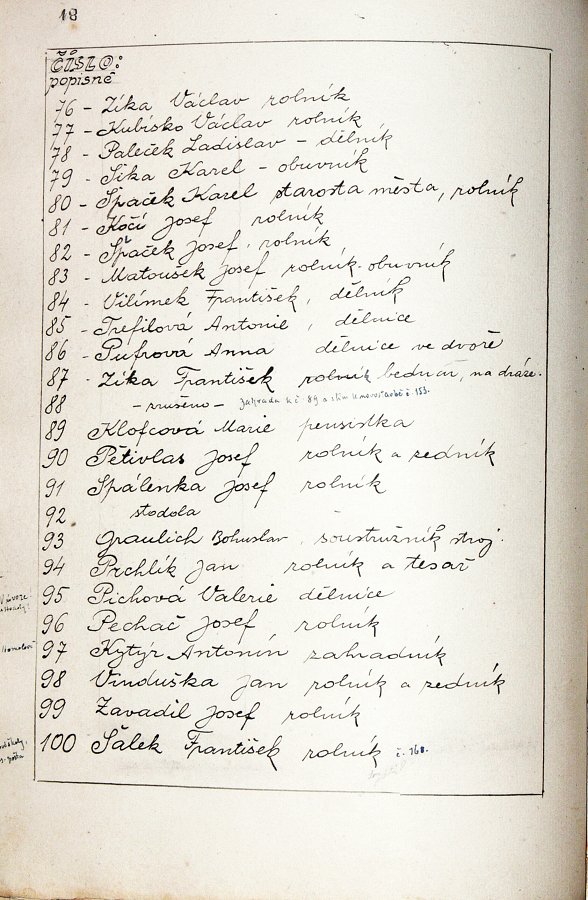 18
ČÍSLO:
popisné
76 - Zíka Václav rolník
77 - Kubísko Václav rolník
78 - Paleček Ladislav - dělník
79 - Síka Karel - obuvník
80 - Špaček Karel starosta města, rolník
81 - Kočí Josef rolník
82 - Špaček Josef. rolník
83 - Matoušek Josef rolník-obuvník
84 - Vilímek František, dělník
85 - Trefilová Antonie, dělnice
86 - Pufrová Anna dělnice ve dvoře
87 - Zíka František rolník bednář, na dráze.
88 - zrušeno - zahrada k č. 89 a č. 153.
89 Klofcová Marie pensistka
90 Pětivlas Josef rolník a zedník
91 Spálenka Josef rolník
92 stodola
93 Graulich Bohuslav, soustružník stroj.
94 Prchlík Jan rolník a tesař
95 Píchová Valerie dělnice
96 Pechač Josef rolník
97 Kytýr Antonín zahradník
98 Vinduška Jan rolník a zedník
99 Zavadil Josef rolník
100 Šálek František rolník č. 168.